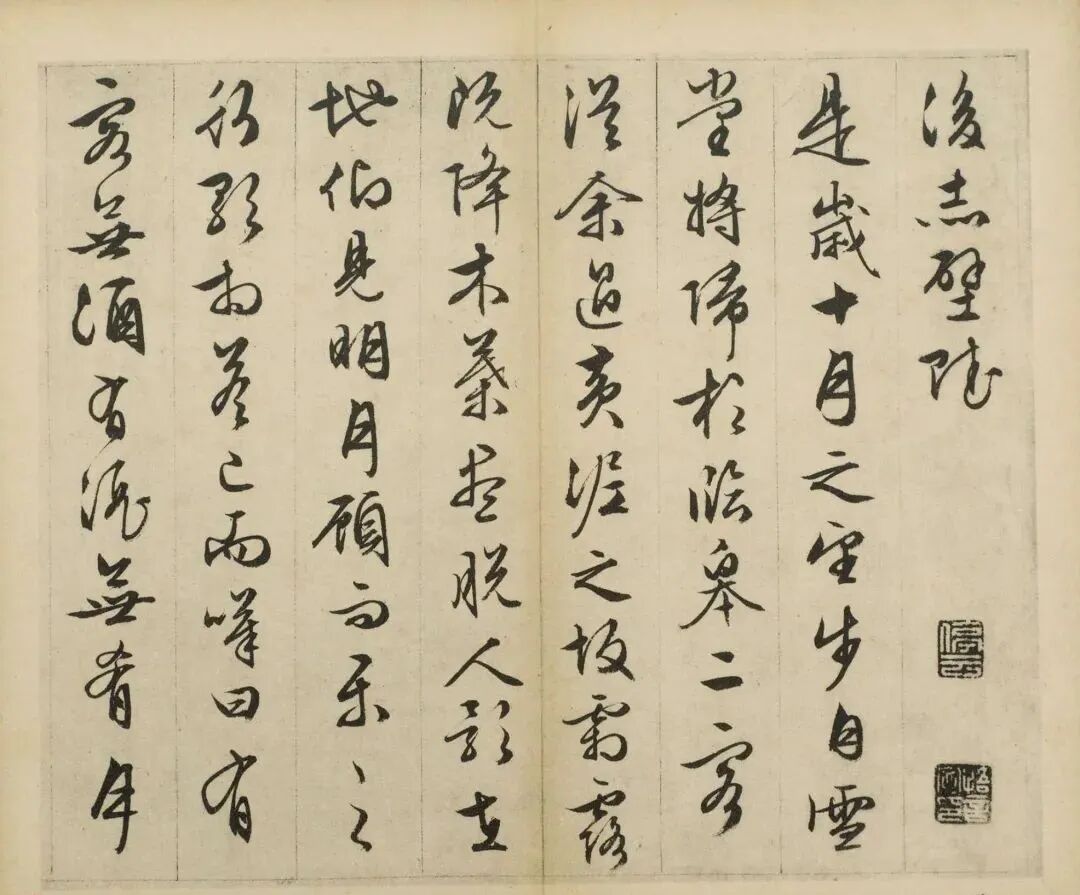 後赤壁賦
是歲十月之望步自雪
堂將歸於臨皋二客
從余過黃泥之坂霜露
既降木葉盡脫人影在
地仰見明月顧而樂之
行歌相答已而嘆曰有
客無酒有酒無肴月